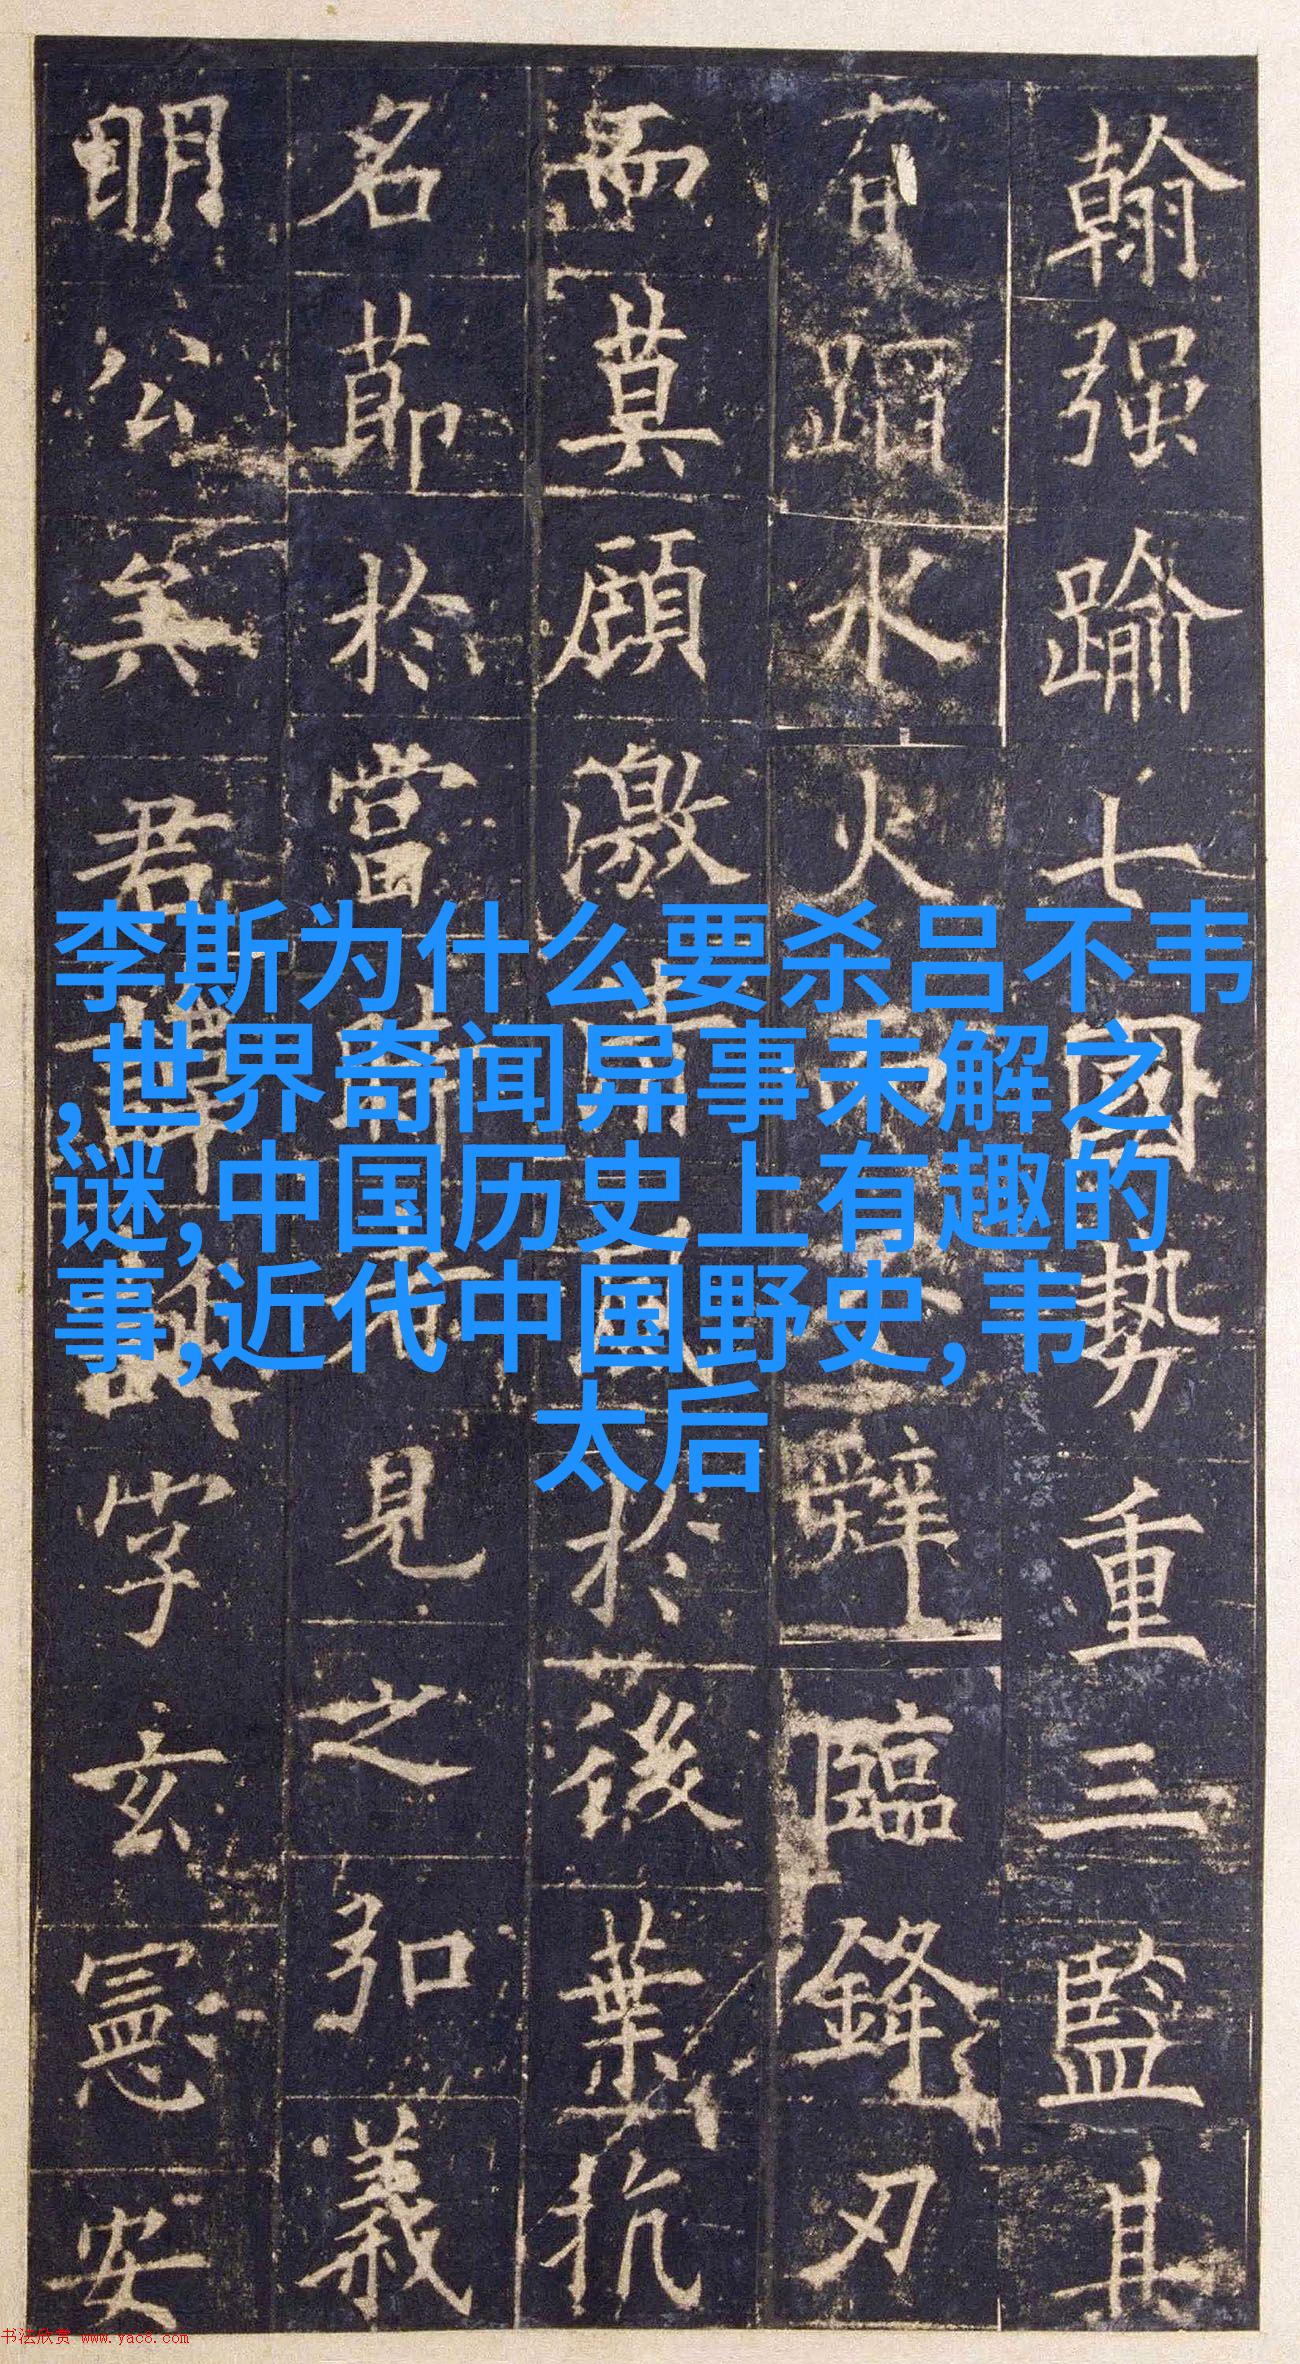 翰强踰七國势重三監其
有蹈水火而辤臨鋒刃
而莫顧激清風於後葉抗
名節於當時者見之弘義
明公矣君諱字玄憲安
李斯为什么要杀吕不韦
,世界奇闻异事未解之
谜,中国历史上有趣的
事,近代中国野史,韦
太后
书法欣赏 www.yac8.com